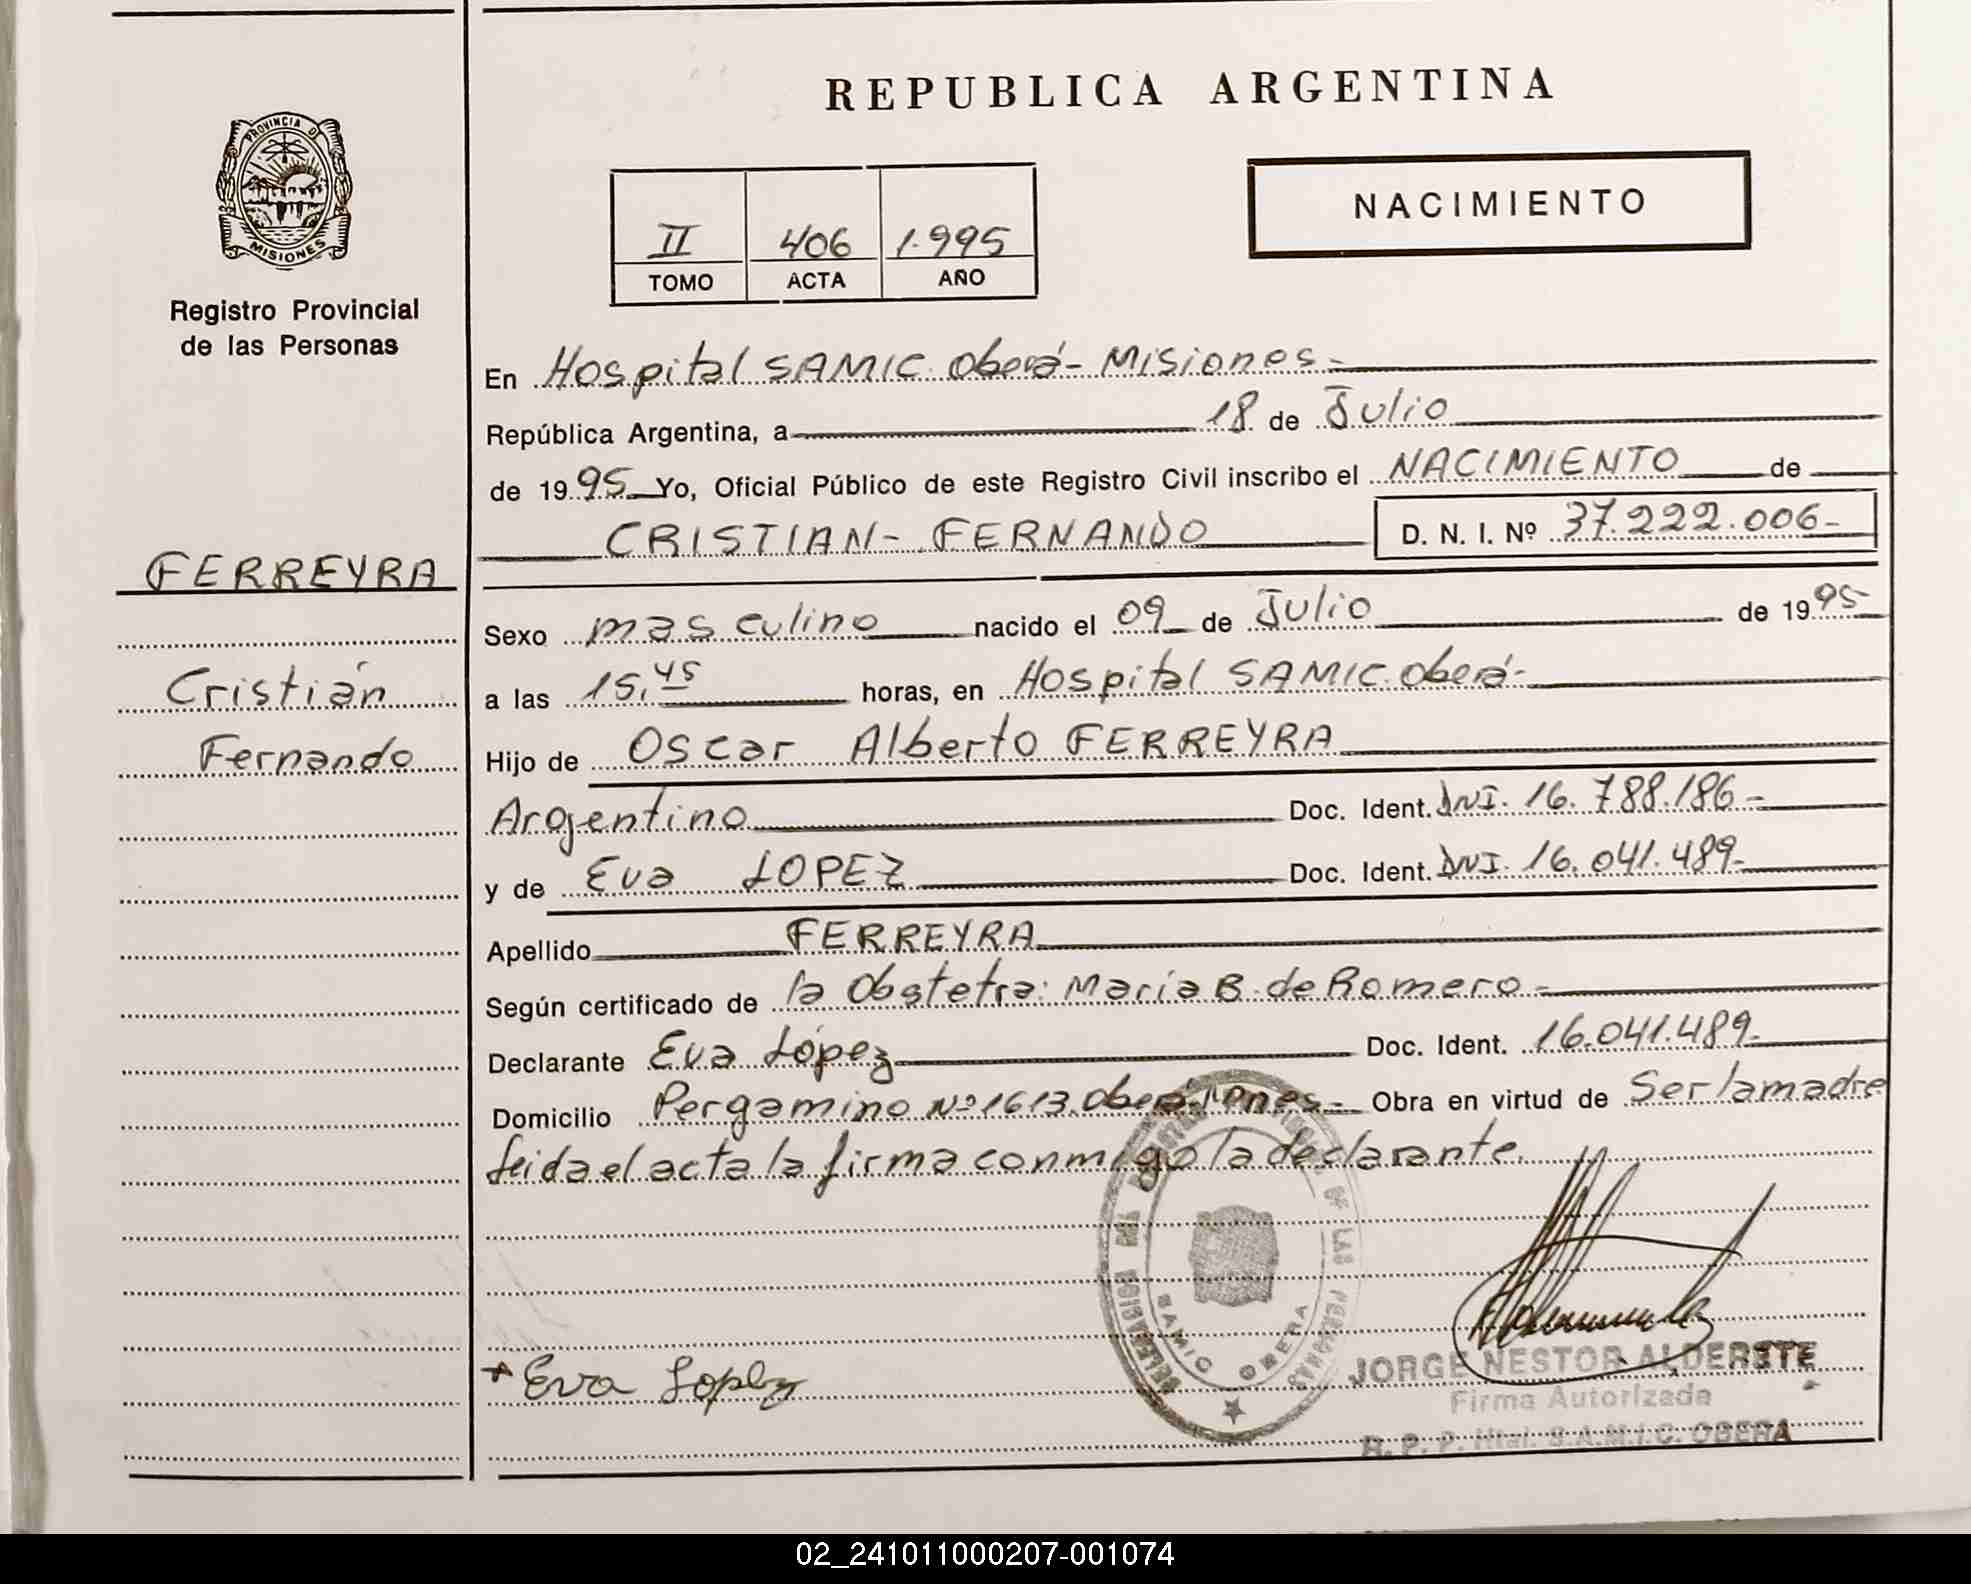 REPUBLICA ARGENTINA
PROVINCIA D
MISIONES
Registro Provincial
de las Personas
II 406 1.995
TOMO ACTA AÑO
NACIMIENTO
En Hospital SAMIC. Oberá - Misiones -
República Argentina, a 18 de Julio
de 1995 Yo, Oficial Público de este Registro Civil inscribo el NACIMIENTO de
CRISTIAN - FERNANDO D. N. I. Nº 37.222.006-
FERREYRA
Cristián
Fernando
Sexo masculino nacido el 09 de Julio de 1995
a las 15,45 horas, en Hospital SAMIC. Oberá-
Hijo de Oscar Alberto FERREYRA
Argentino Doc. Ident. DNI. 16.788.186-
y de Eva LOPEZ Doc. Ident. DNI. 16.041.489-
Apellido FERREYRA
Según certificado de la Obstetra: Maria B. de Romero -
Declarante Eva López Doc. Ident. 16.041.489-
Domicilio Pergamino Nº 1613. Oberá Obra en virtud de Ser la madre
Leida el acta la firma conmigo la declarante.
DE LAS PERSONAS
SAMIC OBERA
Eva Lopez
JORGE NESTOR ALDERETE
Firma Autorizada
R. P. P. Htal. S.A.M.I.C. OBERA
02_241011000207-001074